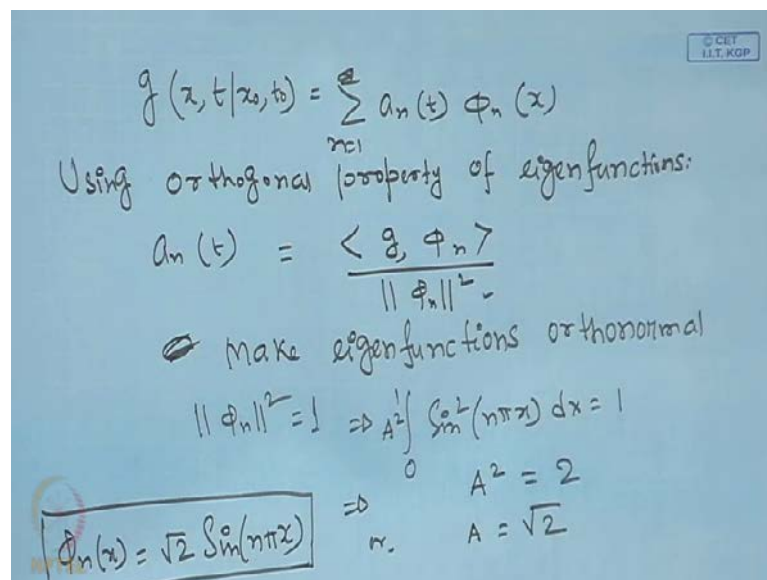 © CET
I.I.T. KGP
g(x, t|x₀, t₀) = Σ aₙ(t) φₙ(x)
n=1
Using orthogonal property of eigenfunctions:
aₙ(t) = <g, φₙ>
||φₙ||²
Make eigenfunctions orthonormal
||φₙ||² = 1 ⇒ A² ∫₀¹ Sin²(nπx) dx = 1
⇒ A² = 2
φₙ(x) = √2 Sin(nπx) or. A = √2
NPTEL